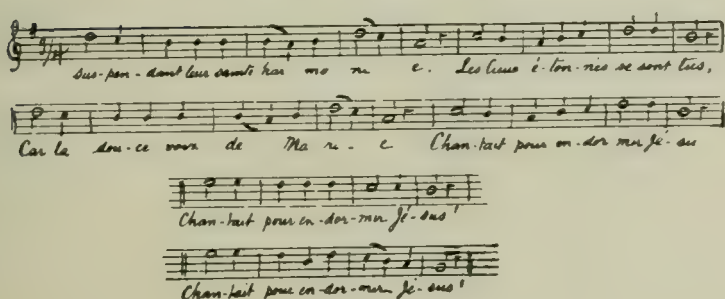 Sus-pen-dant leur sainte har mo ni e. Les Cieux é-ton-nés se sont tus,
Car la dou-ce voix de Ma ri-e Chan-tait pour en-dor-mir Jé-su
Chan-tait pour en-dor-mir Jé-sus!
Chan-tait pour en-dor-mir Jé-sus!